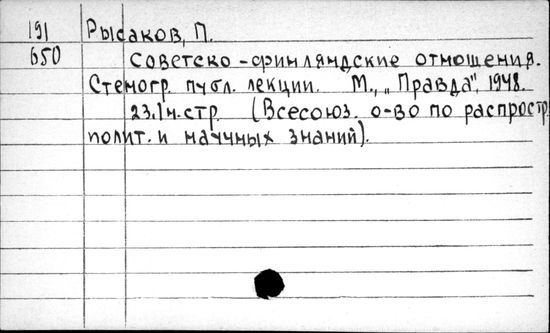 191 Рысаков, П.
650 Советско-финляндские отношения.
Стеногр. публ. лекции. М., „Правда", 1948.
23,1н.стр. (Всесоюз. о-во по распростр.
полит. и научных знаний).